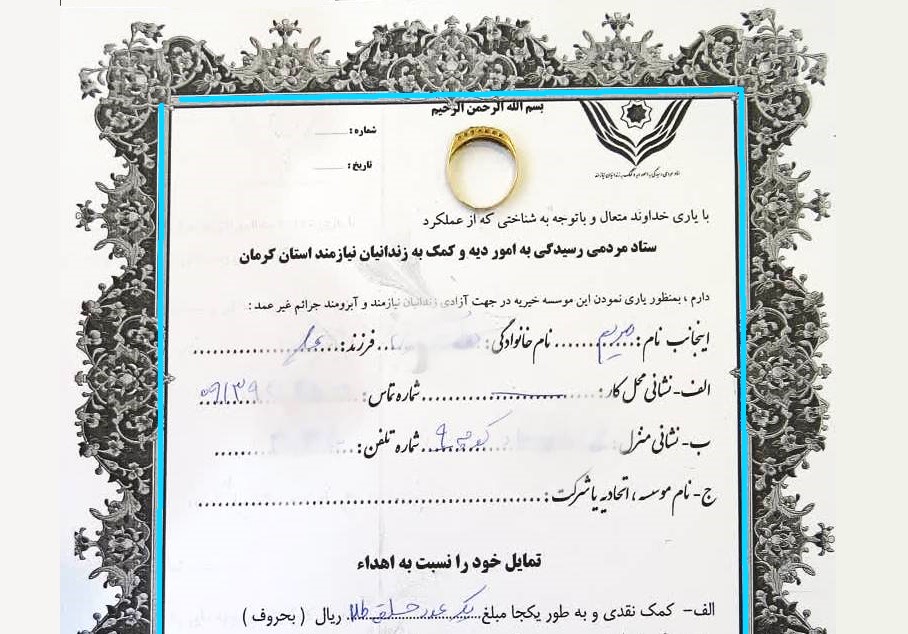 بسم الله الرحمن الرحیم
شماره :
تاریخ :
با یاری خداوند متعال و باتوجه به شناختی که از عملکرد
ستاد مردمی رسیدگی به امور دیه و کمک به زندانیان نیازمند استان کرمان
دارم ، بمنظور یاری نمودن این موسسه خیریه در جهت آزادی زندانیان نیازمند و آبرومند جرائم غیر عمد :
اینجانب نام : مریم نام خانوادگی : فرزند :
الف - نشانی محل کار : شماره تماس : ۰۹۱۳۹
ب - نشانی منزل : کوچه ۹ شماره تلفن :
ج - نام موسسه ، اتحادیه یا شرکت :
تمایل خود را نسبت به اهداء
الف - کمک نقدی و به طور یکجا مبلغ یک عدد حلقه طلا ریال ( بحروف )